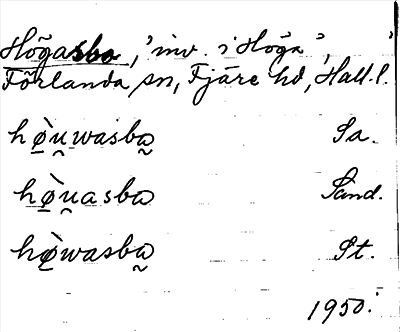 Högasbo, 'inv. i Höga',
Förlanda sn, Fjäre hd, Hall. l.
hø̲̀u̯wasba̰ Sa.
hø̲̀u̯asba̰ Sand.
hø̲̀wasba̰ St.
1950.